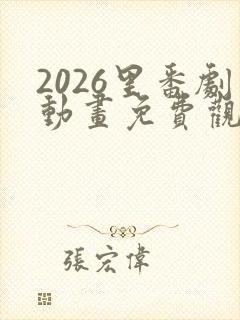 2026里番劇
動畫免費觀
張宏偉